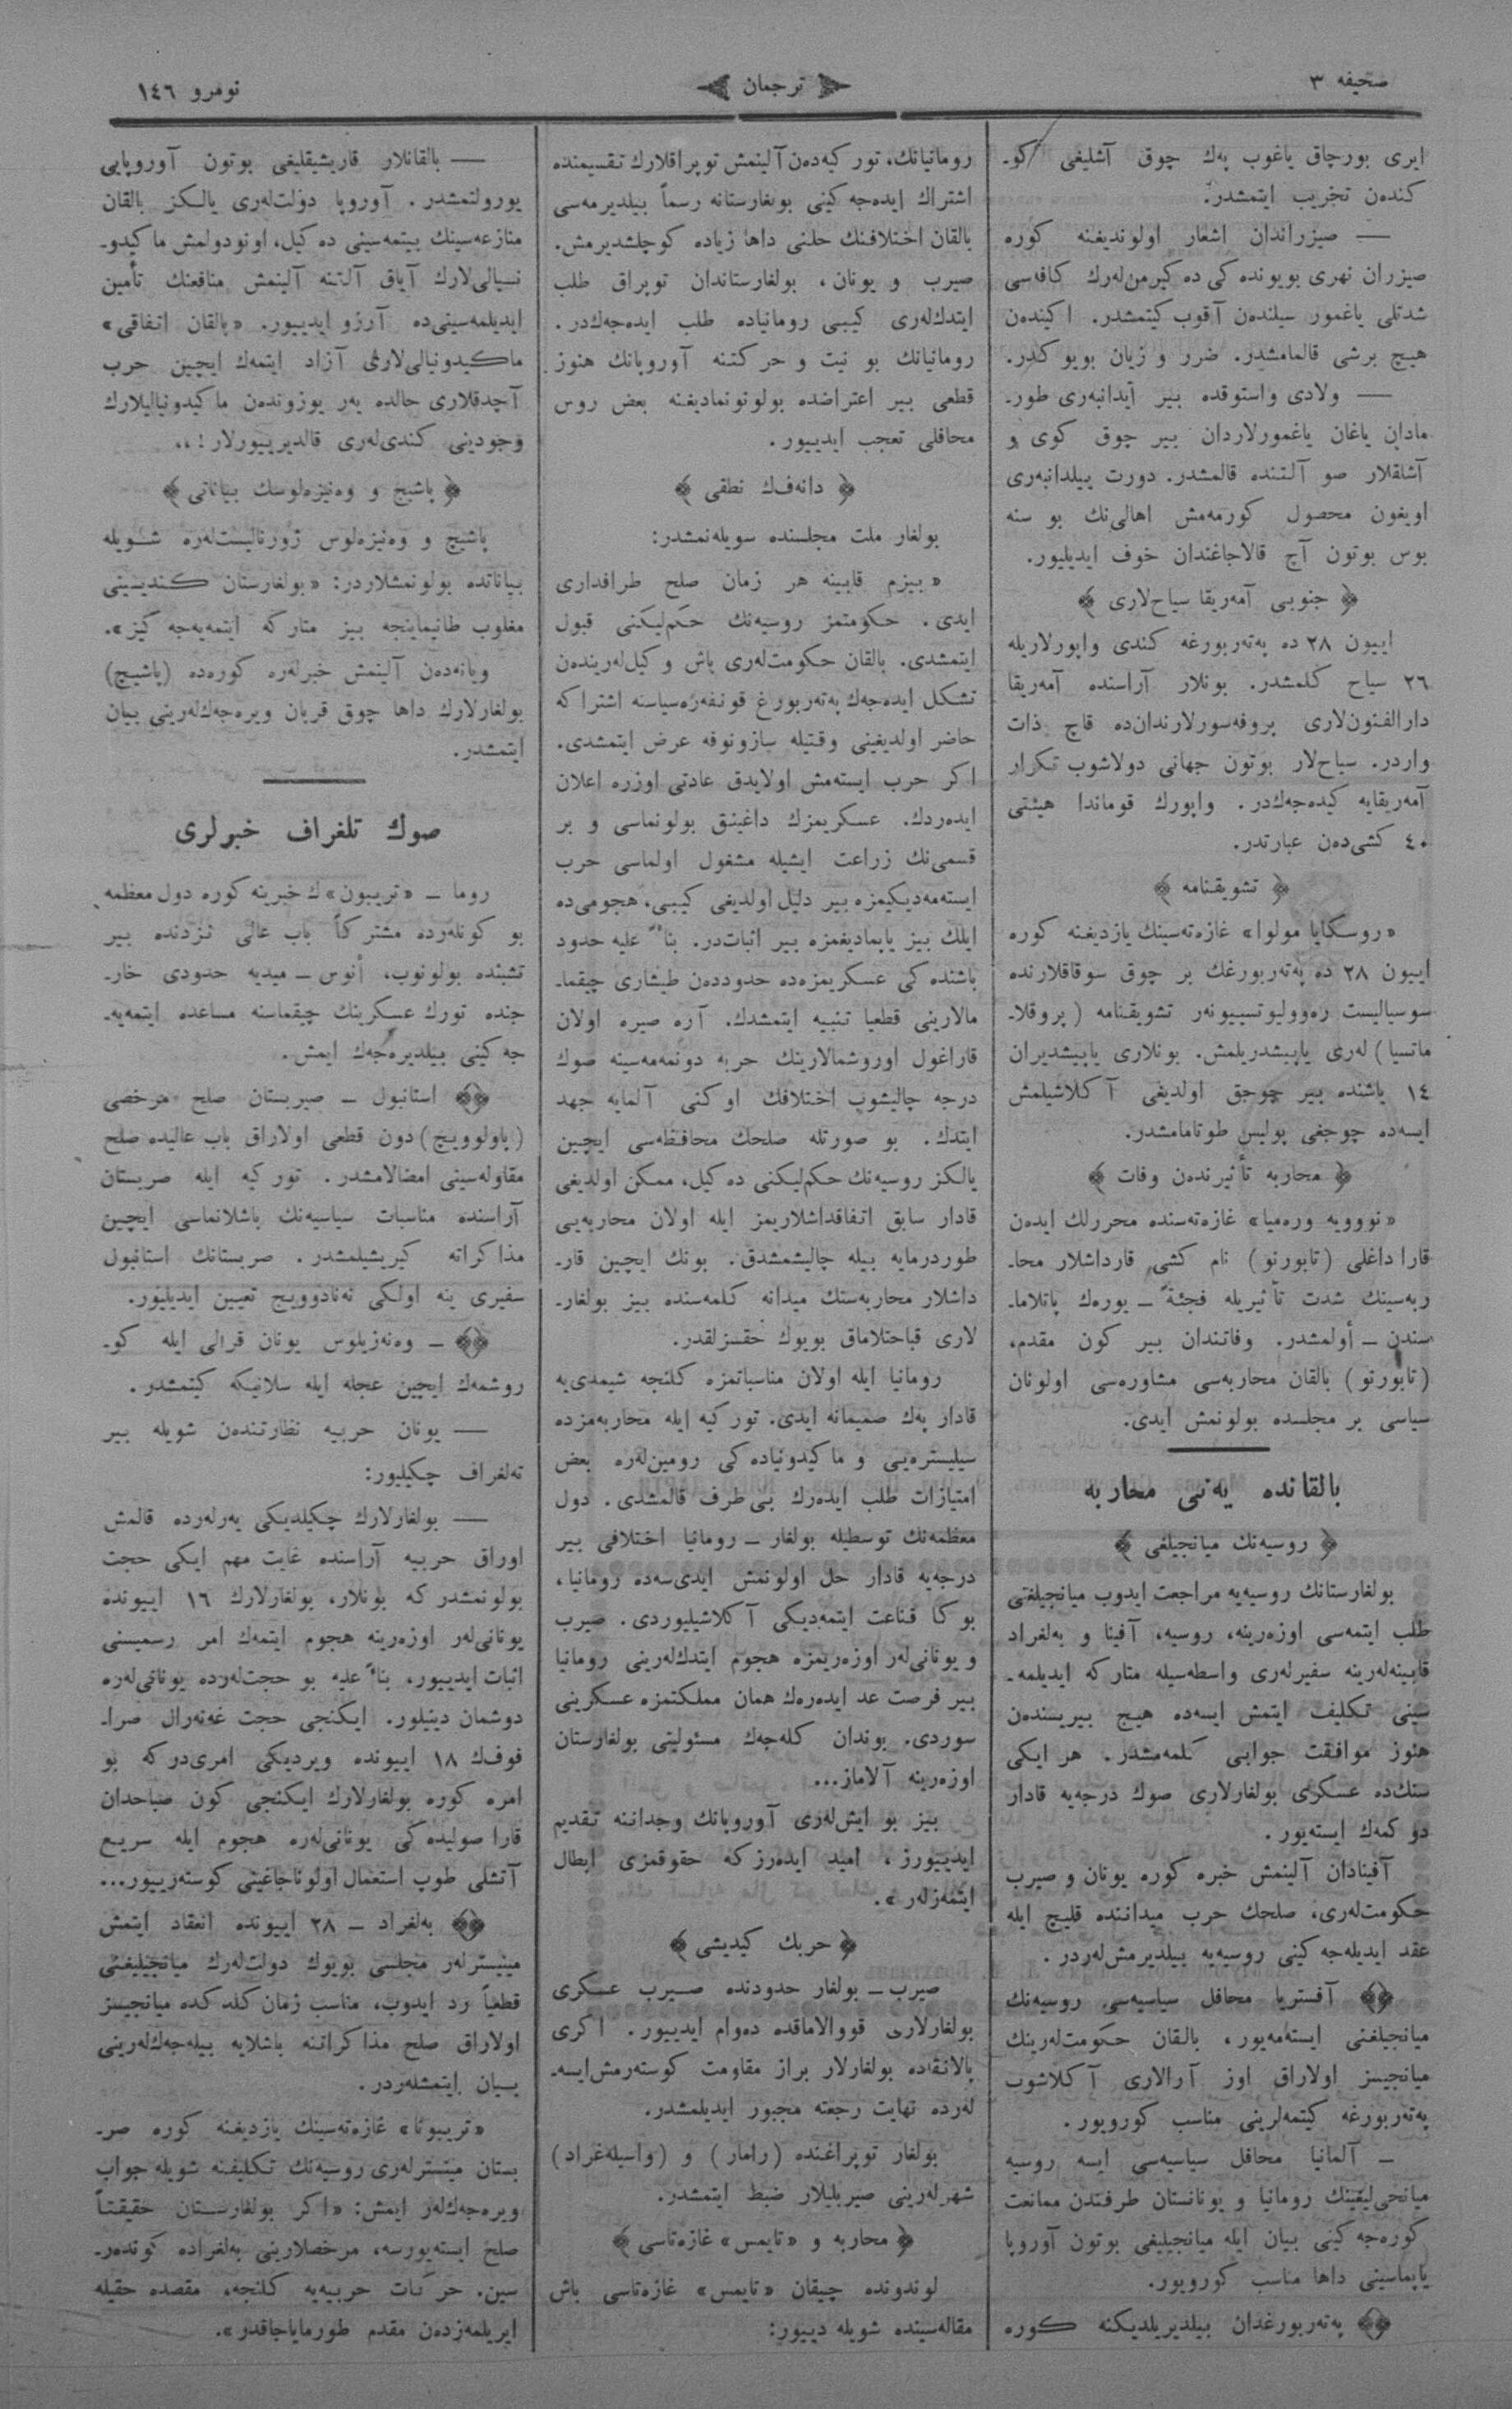 صحیفه ٣
ترجمان
نومرو ١٤٦
ایری بورچاق یاغوب پەك چوق آشلیغی کو۔
کندەن تخریب ایتمشدر.
— صیزراندان اشعار اولوندیغنە کورە
صیزران نهری بویوندە کی دە کیرمن‌لەرك کافەسی
شدتلی یاغمور سیلندەن آقوب کیتمشدر. اکیندەن
هیچ برشی قالمامشدر. ضرر و زیان بویوکدر.
— ولادی واستوقدە بیز آیدانبەری طور۔
مادان یاغان یاغمورلاردان بیر چوق کوی و
آشلقلار صو آلتندە قالمشدر. دورت ییلدانبەری
اویغون محصول کورمەمش اهالی‌نك بو سنە
بوس بوتون آچ قالاجاغندان خوف ایدیلیور.
﴿ جنوبی آمەریقا سیاح‌لاری ﴾
اییون ٢٨ دە پەتەربورغە کندی واپورلاریلە
٢٦ سیاح کلمشدر. بونلار آراسندە آمەریقا
دارالفنون‌لاری پروفەسورلارندان‌دە قاچ ذات
واردر. سیاح‌لار بوتون جهانی دولاشوب تکرار
آمەریقایە کیدەجەك‌در. واپورك قوماندا هیئتی
٤٠ کشی‌دەن عبارتدر.
﴿ تشویقنامە ﴾
«روسکایا مولوا» غازەتەسینك یازدیغنە کورە
اییون ٢٨ دە پەتەربورغك بر چوق سوقاقلارندە
سوسیالیست رەوولیوتسییونەر تشویقنامە (پروقلا۔
ماتسیا) لەری یاپیشدریلمش. بونلاری یاپیشدیران
١٤ یاشندە بیر چوجق اولدیغی آکلاشیلمش
ایسەدە چوجغی پولیس طوتامامشدر.
﴿ محاربە تأثیرندەن وفات ﴾
«نووویە ورەمیا» غازەتەسندە محررلك ایدەن
قارا داغلی (تابورنو) نام کشی قارداشلار محا۔
ربەسینك شدت تأثیریلە فجئةً ـ یورەك پاتلاما۔
سندن ـ أولمشدر. وفاتندان بیر کون مقدم،
(تابورنو) بالقان محاربەسی مشاورەسی اولونان
سیاسی بر مجلسدە بولونمش ایدی.
بالقاندە یەنی محاربە
﴿ روسیەنك میانجیلغی ﴾
بولغارستانك روسیەیە مراجعت ایدوب میانجیلغتی
طلب ایتمەسی اوزەرینە، روسیە، آفینا و بەلغراد
قابینەلەرینە سفیرلەری واسطەسیلە متارکە ایدیلمە۔
سینی تکلیف ایتمش ایسەدە هیچ بیریسندەن
هنوز موافقت جوابی کلمەمشدر. هر ایکی
سنك‌دە عسکری بولغارلاری صوك درجەیە قادار
دوکمەك ایستەیور.
آفینادان آلینمش خبرە کورە یونان و صیرب
حکومت‌لەری، صلحك حرب میداننندە قلیچ ایلە
عقد ایدیلەجەکینی روسیەیە بیلدیرمش‌لەردر.
﴿﴾ آفستریا محافل سیاسیەسی روسیەنك
میانجیلغنی ایستەمەیور، بالقان حکومت‌لەرینك
میانجیسز اولاراق اوز آرالاری آکلاشوب
پەتەربورغە کیتمەلرینی مناسب کورویور.
ـ آلمانیا محافل سیاسیەسی ایسە روسیە
میانجی‌لیغینك رومانیا و یونانستان طرفندن ممانعت
کورەجەکینی بیان ایلە میانجیلیغی بوتون آوروپا
یاپماسینی داها مناسب کورویور.
﴿﴾ پەتەربورغدان بیلدیریلدیکنە کورە
رومانیانك، تورکیەدەن آلینمش توپراقلارك تقسیمندە
اشتراك ایدەجەکینی بولغارستانە رسماً بیلدیرمەسی
بالقان اختلافنك حلنی داها زیادە کوچلشدیرمش.
صیرب و یونان، بولغارستاندان توپراق طلب
ایتدك‌لەری کیبی رومانیادە طلب ایدەجەك‌در.
رومانیانك بو نیت و حرکتنە آوروپانك هنوز
قطعی بیر اعتراضدە بولونمادیغنە بعض روس
محافلی تعجب ایدییور.
﴿ دانەف‌ك نطقی ﴾
بولغار ملت مجلسندە سویلەنمشدر:
«بیزم قابینە هر زمان صلح طرافداری
ایدی. حکومتمز روسیەنك حکم‌لیکنی قبول
ایتمشدی. بالقان حکومت‌لەری باش وکیل‌لەریندەن
تشکل ایدەجەك پەتەربورغ قونفەرەسیاسنە اشتراکە
حاضر اولدیغینی وقتیلە سازونوفە عرض ایتمشدی.
اکر حرب ایستەمش اولایدق عادتی اوزرە اعلان
ایدەردك. عسکریمزك داغینق بولونماسی و بر
قسمی‌نك زراعت ایشیلە مشغول اولماسی حرب
ایستەمەدیکیمزە بیر دلیل اولدیغی کیبی، هجومی‌دە
ایلك بیز یاپمادیغمزە بیر اثبات‌در. بناءً علیە حدود
باشندە کی عسکریمزەدە حدوددەن طیشاری چیقما۔
مالارینی قطعیا تنبیە ایتمشدك. آرە صیرە اولان
قاراغول اوروشمالارینك حربە دونمەمەسینە صوك
درجە چالیشوب اختلافك اوکنی آلمایە جهد
ایتدك. بو صورتلە صلحك محافظەسی ایچین
یالکز روسیەنك حکم‌لیکنی دە کیل، ممکن اولدیغی
قادار سابق اتفاقداشلاریمز ایلە اولان محاربەیی
طوردرمایە بیلە چالیشمشدق. بونك ایچین قار۔
داشلار محاربەسنك میدانە کلمەسندە بیز بولغار۔
لاری قباحتلاماق بویوك حقسزلقدر.
رومانیا ایلە اولان مناسباتمزە کلنجە شیمدی‌یە
قادار پەك صمیمانە ایدی. تورکیە ایلە محاربەمزدە
سیلیسترەیی و ماکیدونیادەکی رومین‌لەرە بعض
امتیازات طلب ایدەرك بی‌طرف قالمشدی. دول
معظمەنك توسطیلە بولغار ـ رومانیا اختلافی بیر
درجەیە قادار حل اولونمش ایدی‌سەدە رومانیا،
بوکا قناعت ایتمەدیکی آکلاشیلیوردی. صیرب
و یونانی‌لەر اوزەریمزە هجوم ایتدك‌لەرینی رومانیا
بیر فرصت عد ایدەرەك همان مملکتمزە عسکرینی
سوردی. بوندان کلەجەك مسئولیتی بولغارستان
اوزەرینە آلاماز...
بیز بو ایش‌لەری آوروپانك وجداننە تقدیم
ایدییورز، امید ایدەرزکە حقوقمزی ابطال
ایتمەزلەر».
﴿ حربك کیدیشی ﴾
صیرب ـ بولغار حدودندە صیرب عسکری
بولغارلاری قووالاماقدە دەوام ایدییور. اکری
پالانقادە بولغارلار براز مقاومت کوستەرمش‌ایسە۔
لەردە نهایت رجعتە مجبور ایدیلمشدر.
بولغار توپراغندە (رامار) و (واسیلەغراد)
شهرلەرینی صیربلیلار ضبط ایتمشدر.
﴿ محاربە و «تایمس» غازەتاسی ﴾
لوندوندە چیقان «تایمس» غازەتاسی باش
مقالەسیندە شویلە دییور:
— بالقانلار قاریشیقلیغی بوتون آوروپایی
یورولتمشدر. آوروپا دولت‌لەری یالکز بالقان
منازعەسینك بیتمەسینی دە کیل، اونودولمش ماکیدو۔
نسیالی‌لارك آیاق آلتنە آلینمش منافعنك تأمین
ایدیلمەسینی‌دە آرزو ایدییور. «بالقان اتفاقی»
ماکیدونیالی‌لاری آزاد ایتمەك ایچین حرب
آچدقلاری حالدە یەر یوزوندەن ماکیدونیالیلارك
وجودینی کندی‌لەری قالدیریییورلار!..
﴿ پاشیچ و وەنیزەلوسك بیاناتی ﴾
پاشیچ و وەنیزەلوس ژورنالیست‌لەرە شویلە
بیاناتدە بولونمشلاردر: «بولغارستان کندیسینی
مغلوب طانیماینجە بیز متارکە ایتمەیەجەکیز».
ویانەدەن آلینمش خبرلەرە کورەدە (پاشیچ)
بولغارلارك داها چوق قربان ویرەجەك‌لەرینی بیان
ایتمشدر.
صوك تلغراف خبرلری
روما ـ «تریبون»ك خبرینە کورە دول معظمە
بو کونلەردە مشترکاً باب عالی نزدندە بیر
تشبثدە بولونوب، أنوس ـ میدیە حدودی خار۔
جندە تورك عسکرینك چیقماسنە مساعدە ایتمەیە۔
جەکینی بیلدیرەجەك ایمش.
﴿﴾ استانبول ـ صیربستان صلح مرخصی
(پاولوویچ) دون قطعی اولاراق باب عالیدە صلح
مقاولەسینی امضالامشدر. تورکیە ایلە صربستان
آراسندە مناسبات سیاسیەنك باشلانماسی ایچین
مذاکراتە کیریشیلمشدر. صربستانك استانبول
سفیری ینە اولکی نەنادوویچ تعیین ایدیلیور.
﴿﴾ ـ وەنەزیلوس یونان قرالی ایلە کو۔
روشمەك ایچین عجلە ایلە سلانیکە کیتمشدر.
— یونان حربیە نظارتندەن شویلە بیر
تەلغراف چکیلیور:
— بولغارلارك چکیلدیکی یەرلەردە قالمش
اوراق حربیە آراسندە غایت مهم ایکی حجت
بولونمشدرکە بونلار، بولغارلارك ١٦ اییوندە
یونانی‌لەر اوزەرینە هجوم ایتمەك امر رسمیسنی
اثبات ایدییور، بناءً علیە بو حجت‌لەردە یونانی‌لەرە
دوشمان دینیلور. ایکنجی حجت غەنەرال صرا۔
فوف‌ك ١٨ اییوندە ویردیکی امری‌درکە بو
امرە کورە بولغارلارك ایکنجی کون صباحدان
قارا صولیدە کی یونانی‌لەرە هجوم ایلە سریع
آتشلی طوپ استعمال اولوناجاغینی کوستەرییور...
﴿﴾ بەلغراد ـ ٢٨ اییوندە انعقاد ایتمش
مینیسترلەر مجلسی بویوك دولت‌لەرك میانجیلیغنی
قطعیاً رد ایدوب، مناسب زمان کلدکدە میانجیسز
اولاراق صلح مذاکراتنە باشلایە بیلەجەك‌لەرینی
بیان ایتمشلەردر.
«تریبونا» غازەتەسینك یازدیغنە کورە صر۔
بستان مینسترلەری روسیەنك تکلیفنە شویلە جواب
ویرەجەك‌لەر ایمش: «اکر بولغارستان حقیقتاً
صلح ایستەیورسە، مرخصلارینی بەلغرادە کوندەر۔
سین. حرکات حربییەیە کلنجە، مقصدە حقیلە
ایریلمەزدەن مقدم طورمایاجاقدر».